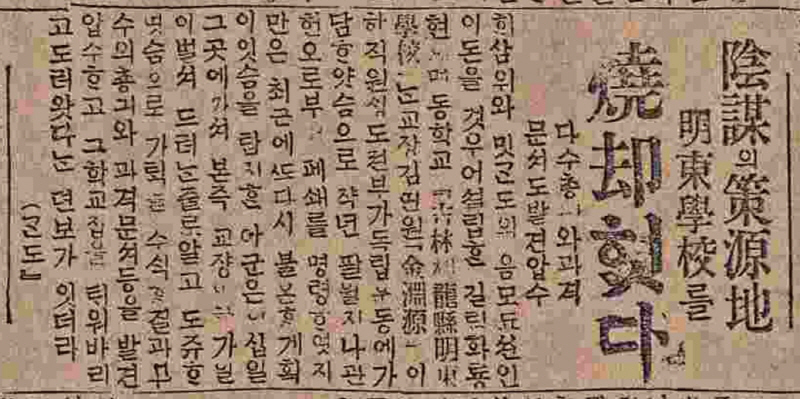 陰謀의策源地
明東學校를
燒却힛다
다수총 와과격
문셔도발견압수
희삼위와 밋 도의 음모 션인
이돈을 것우어설립ᄒᆞᆫ 길림화룡
현 동학교 林 龍縣明東
學校 는교장김연원(金淵源) 이
하직원 도전부가득립운동에가
담ᄒᆞ얏슴으로 작년 팔월지나관
헌으로부 폐쇄를 명령ᄒᆞ엿지
만은 최근에 ᄯᅩ다시 불온ᄒᆞᆫ계획
이잇슴을 탐지ᄒᆞᆫ 아군은이십일
그곳에가셔 본즉 교쟝 가
이벌셔 드러난줄로알고 도쥬ᄒᆞ
엿슴으로 가턱을 수식 결과
수의총긔와 과격문셔등을 발견
압수ᄒᆞ고 그학교집을 틔워바리
고도라왓다는 뎐보가 잇더라